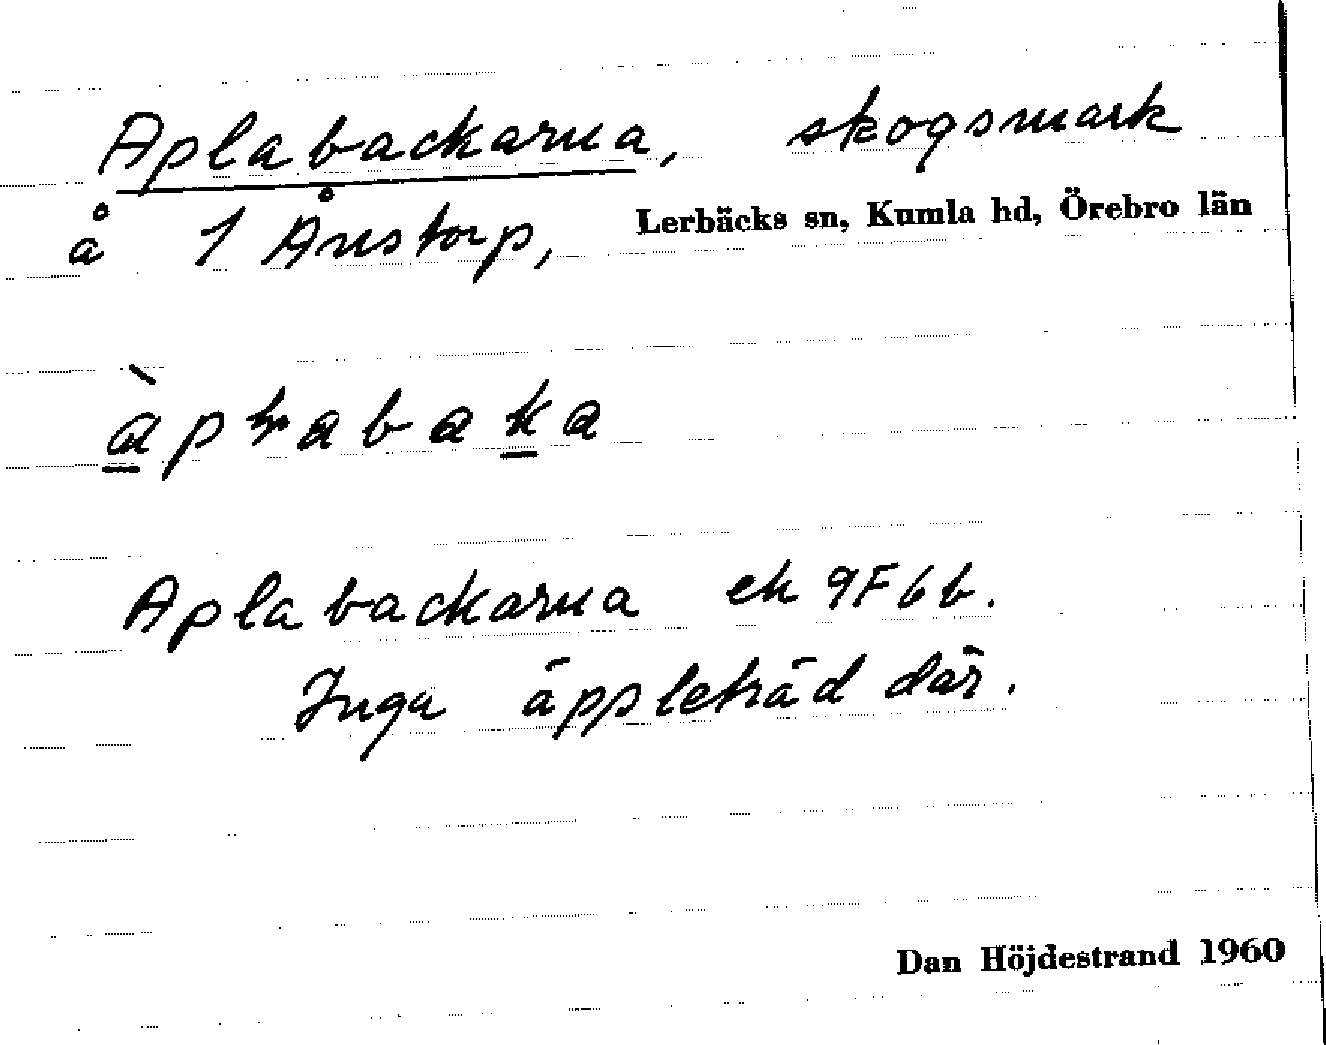 Aplabackarna, skogsmark
å 1 Ånstorp, Lerbäcks sn, Kumla hd, Örebro län
Aplabackarna ek 9F6b.
Inga äppleträd där.
Dan Höjdestrand 1960